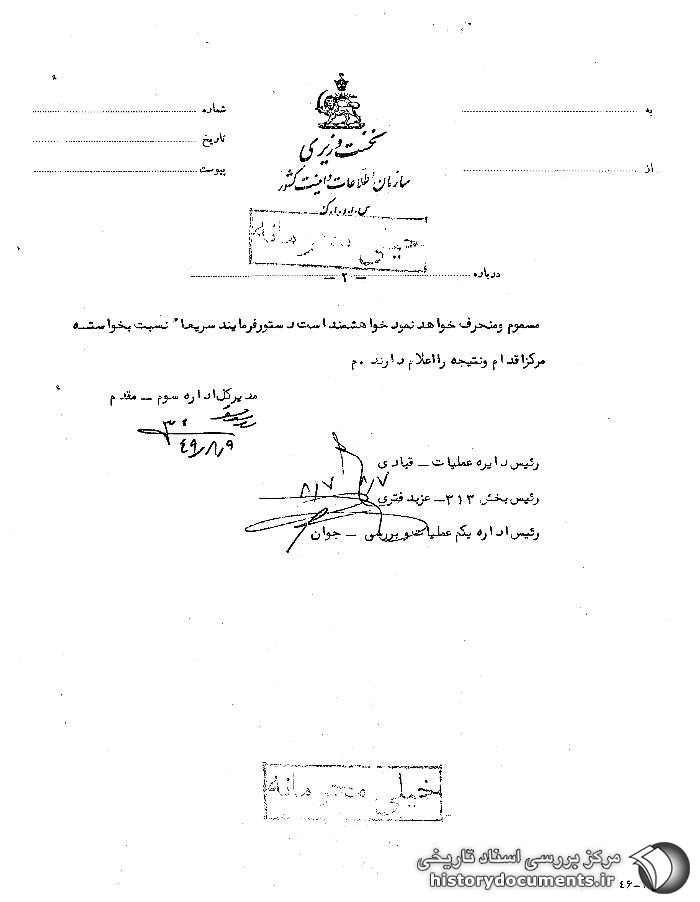 به
از
نخست وزیری
سازمان اطلاعات و امنیت کشور
س.ا.و.ا.ک
شماره
تاریخ
پیوست
خیلی محرمانه
درباره
ـ ۲ ـ
مسموم ومنحرف خواهد نمود خواهشمند است دستورفرمایند سریعا" نسبت بخواسته
مرکزاقدام ونتیجه رااعلام دارند .م
مدیرکل اداره سوم ـ مقدم
۴۹/۸/۹
رئیس دایره عملیات ـ قبادی
۸/۷
رئیس بخش ۳۱۳ـ عزبدفتری
۸/۷
رئیس اداره یکم عملیات و بررسی ـ جوان
خیلی محرمانه
مرکز بررسی اسناد تاریخی
historydocuments.ir